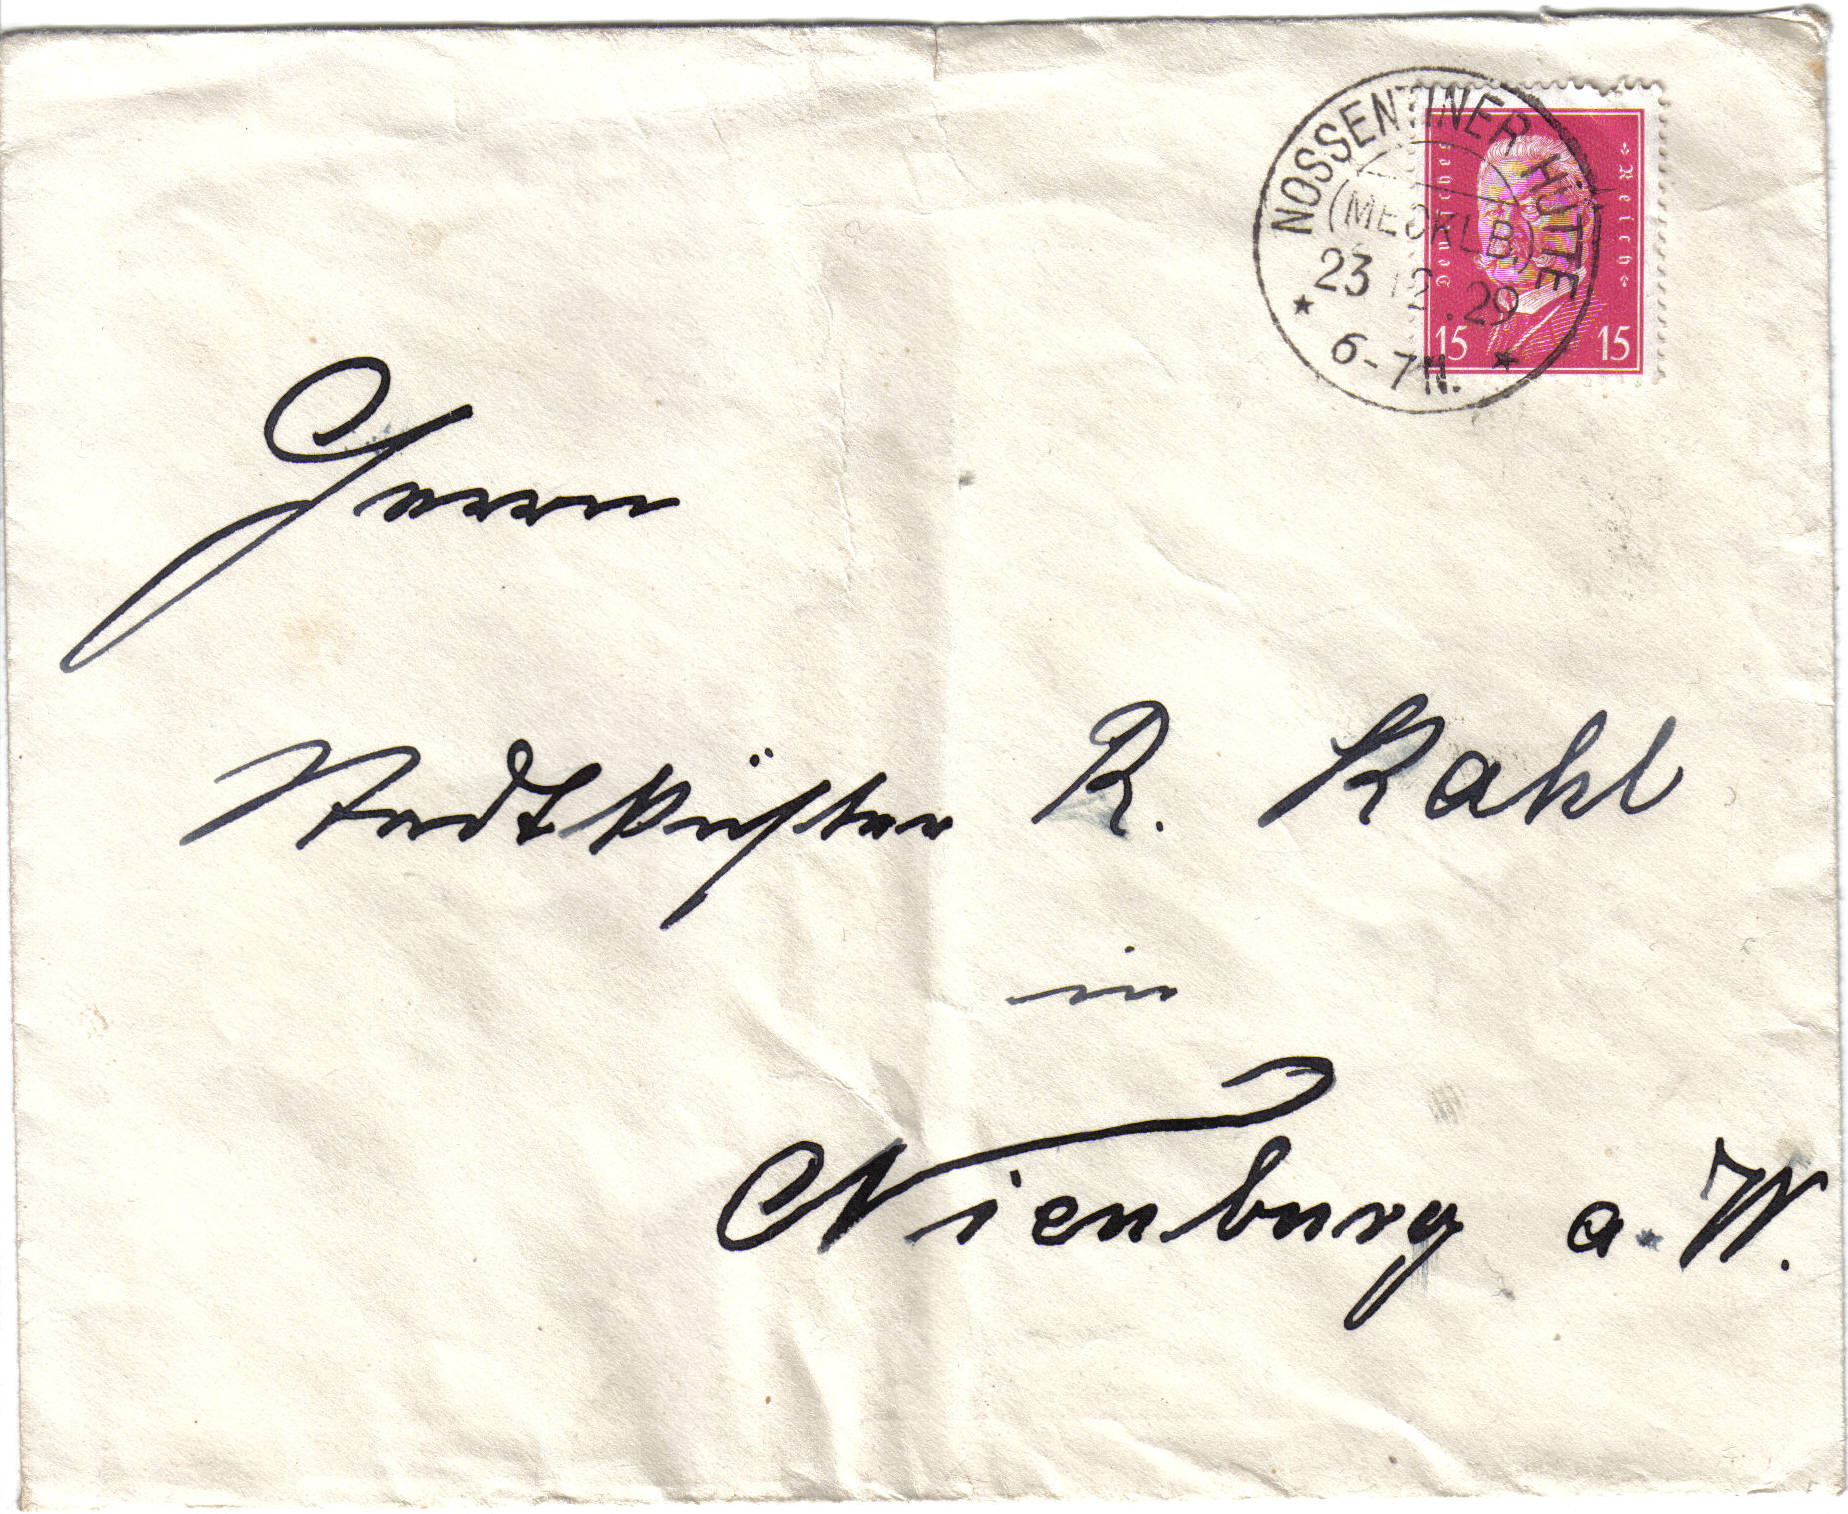 NOSSENTINER HÜTTE
(MECKLB.)
23.12.29
6-7N.
Deutsches Reich
15 15
Herrn
Stadtküster R. Kahl
in
Nienburg a. W.